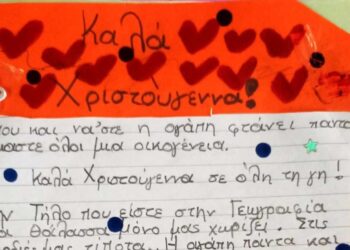 Καλά
Χριστούγεννα!
που και να'στε η αγάπη φτάνει παντο
μαστε όλοι μια οικογένεια.
Καλά Χριστούγεννα σε όλη τη γη!
ην Τήλο που είστε στην Γεωγραφία
θάλασσα μόνο μας χωρίζει. Στις
μας τίποτα. Η αγάπη πάντα και